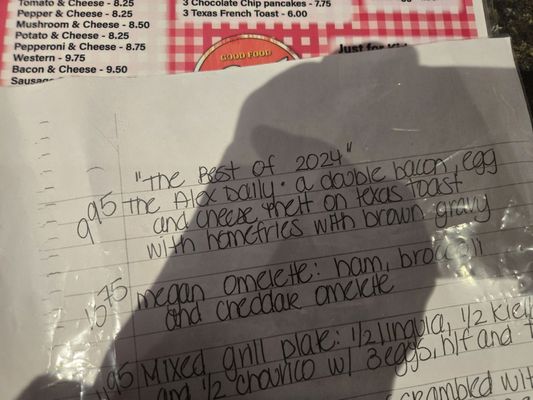 Tomato & Cheese - 8.25
Pepper & Cheese - 8.25
Mushroom & Cheese - 8.50
Potato & Cheese - 8.25
Pepperoni & Cheese - 8.75
Western - 9.75
Bacon & Cheese - 9.50
Sausage
3 Chocolate Chip pancakes - 7.75
3 Texas French Toast - 6.00
GOOD FOOD
Just for
"The Best of 2024"
995 The Alex Daily: a double bacon, egg
and cheese melt on Texas Toast
with homefries with brown gravy
1575 megan omelette: ham, broccoli
and cheddar omelette
1195 Mixed grill plate: 1/2 linguia, 1/2 Kiel
and 1/2 chourico w/ 3 eggs, h/f and t
scrambled wit